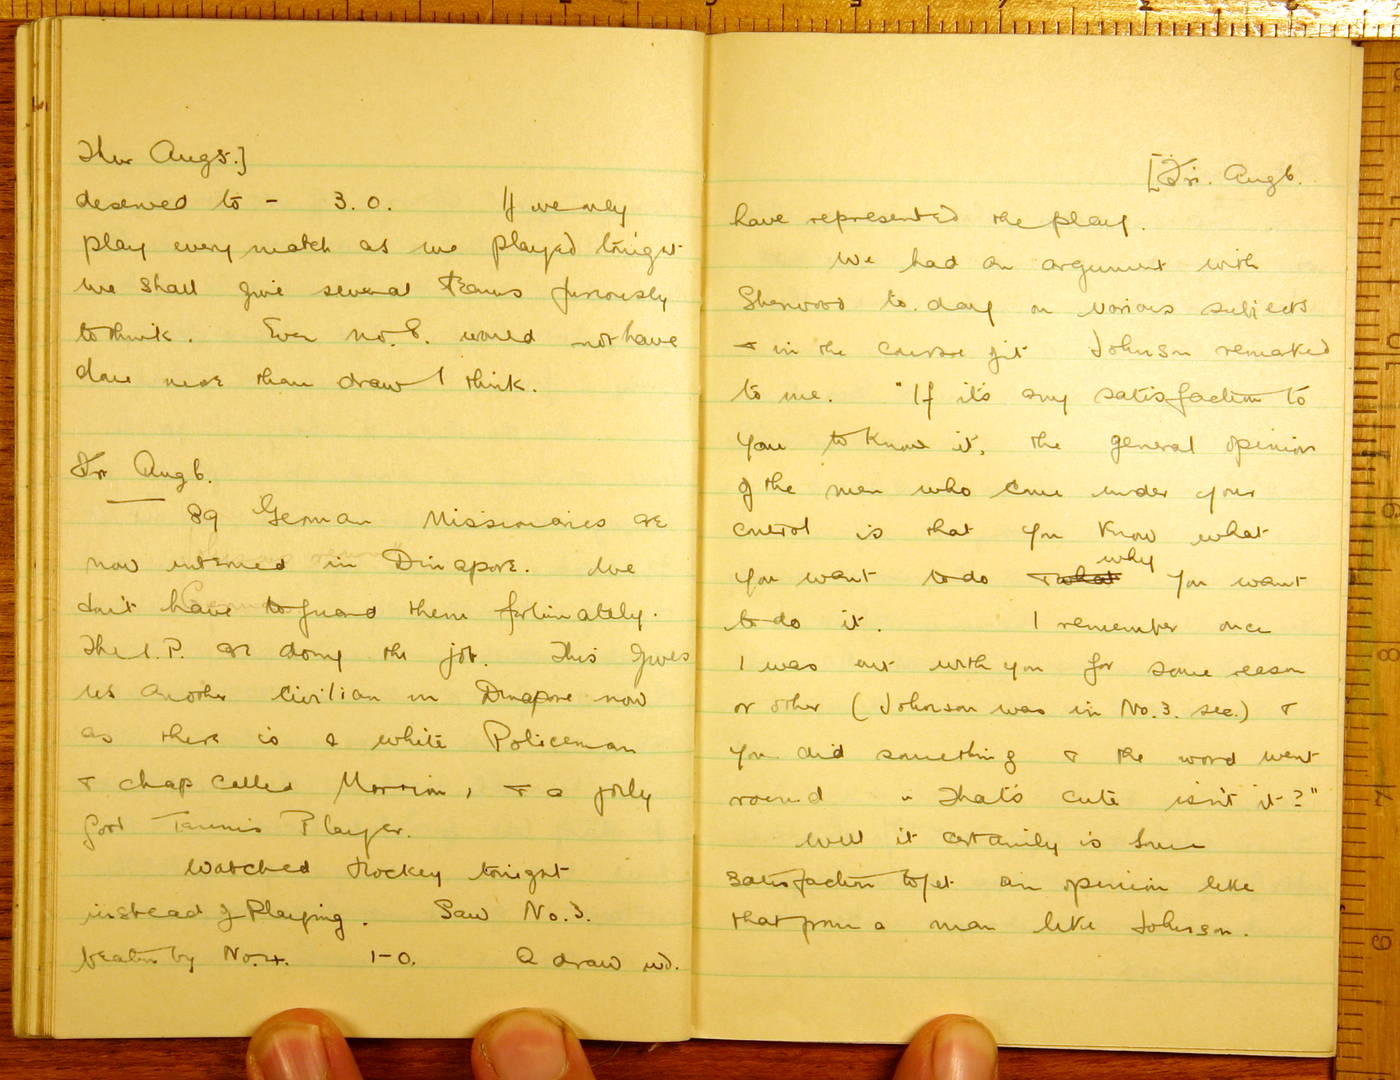 Thur Aug 5.]
deserved to - 3.0. If we only
play every match as we played tonight
we shall give several teams furiously
to think. Even No. 8. would not have
done more than draw I think.
Fri Aug 6.
89 German Missionaries are
now interned in Dinapore. We
don't have to guard them fortunately.
The I.P. are doing the job. This gives
us another civilian in Dinapore now
as there is a white Policeman
& chap called Morrison, & a jolly
good Tennis Player.
Watched Hockey tonight
instead of Playing. Saw No. 3.
beaten by No. 4. 1-0. A draw wd.
[Fri. Aug 6.
have represented the play.
We had an argument with
Sherwood to.day on various subjects
& in the course of it Johnson remarked
to me. "If it's any satisfaction to
you to know it, the general opinion
of the men who come under your
control is that you know what
why
you want to do & what you want
to do it. I remember once
I was out with you for some reason
or other (Johnson was in No. 3. sec.) &
you did something & the word went
round "That's cute isn't it?"
Well it certainly is some
satisfaction to get an opinion like
that from a man like Johnson.